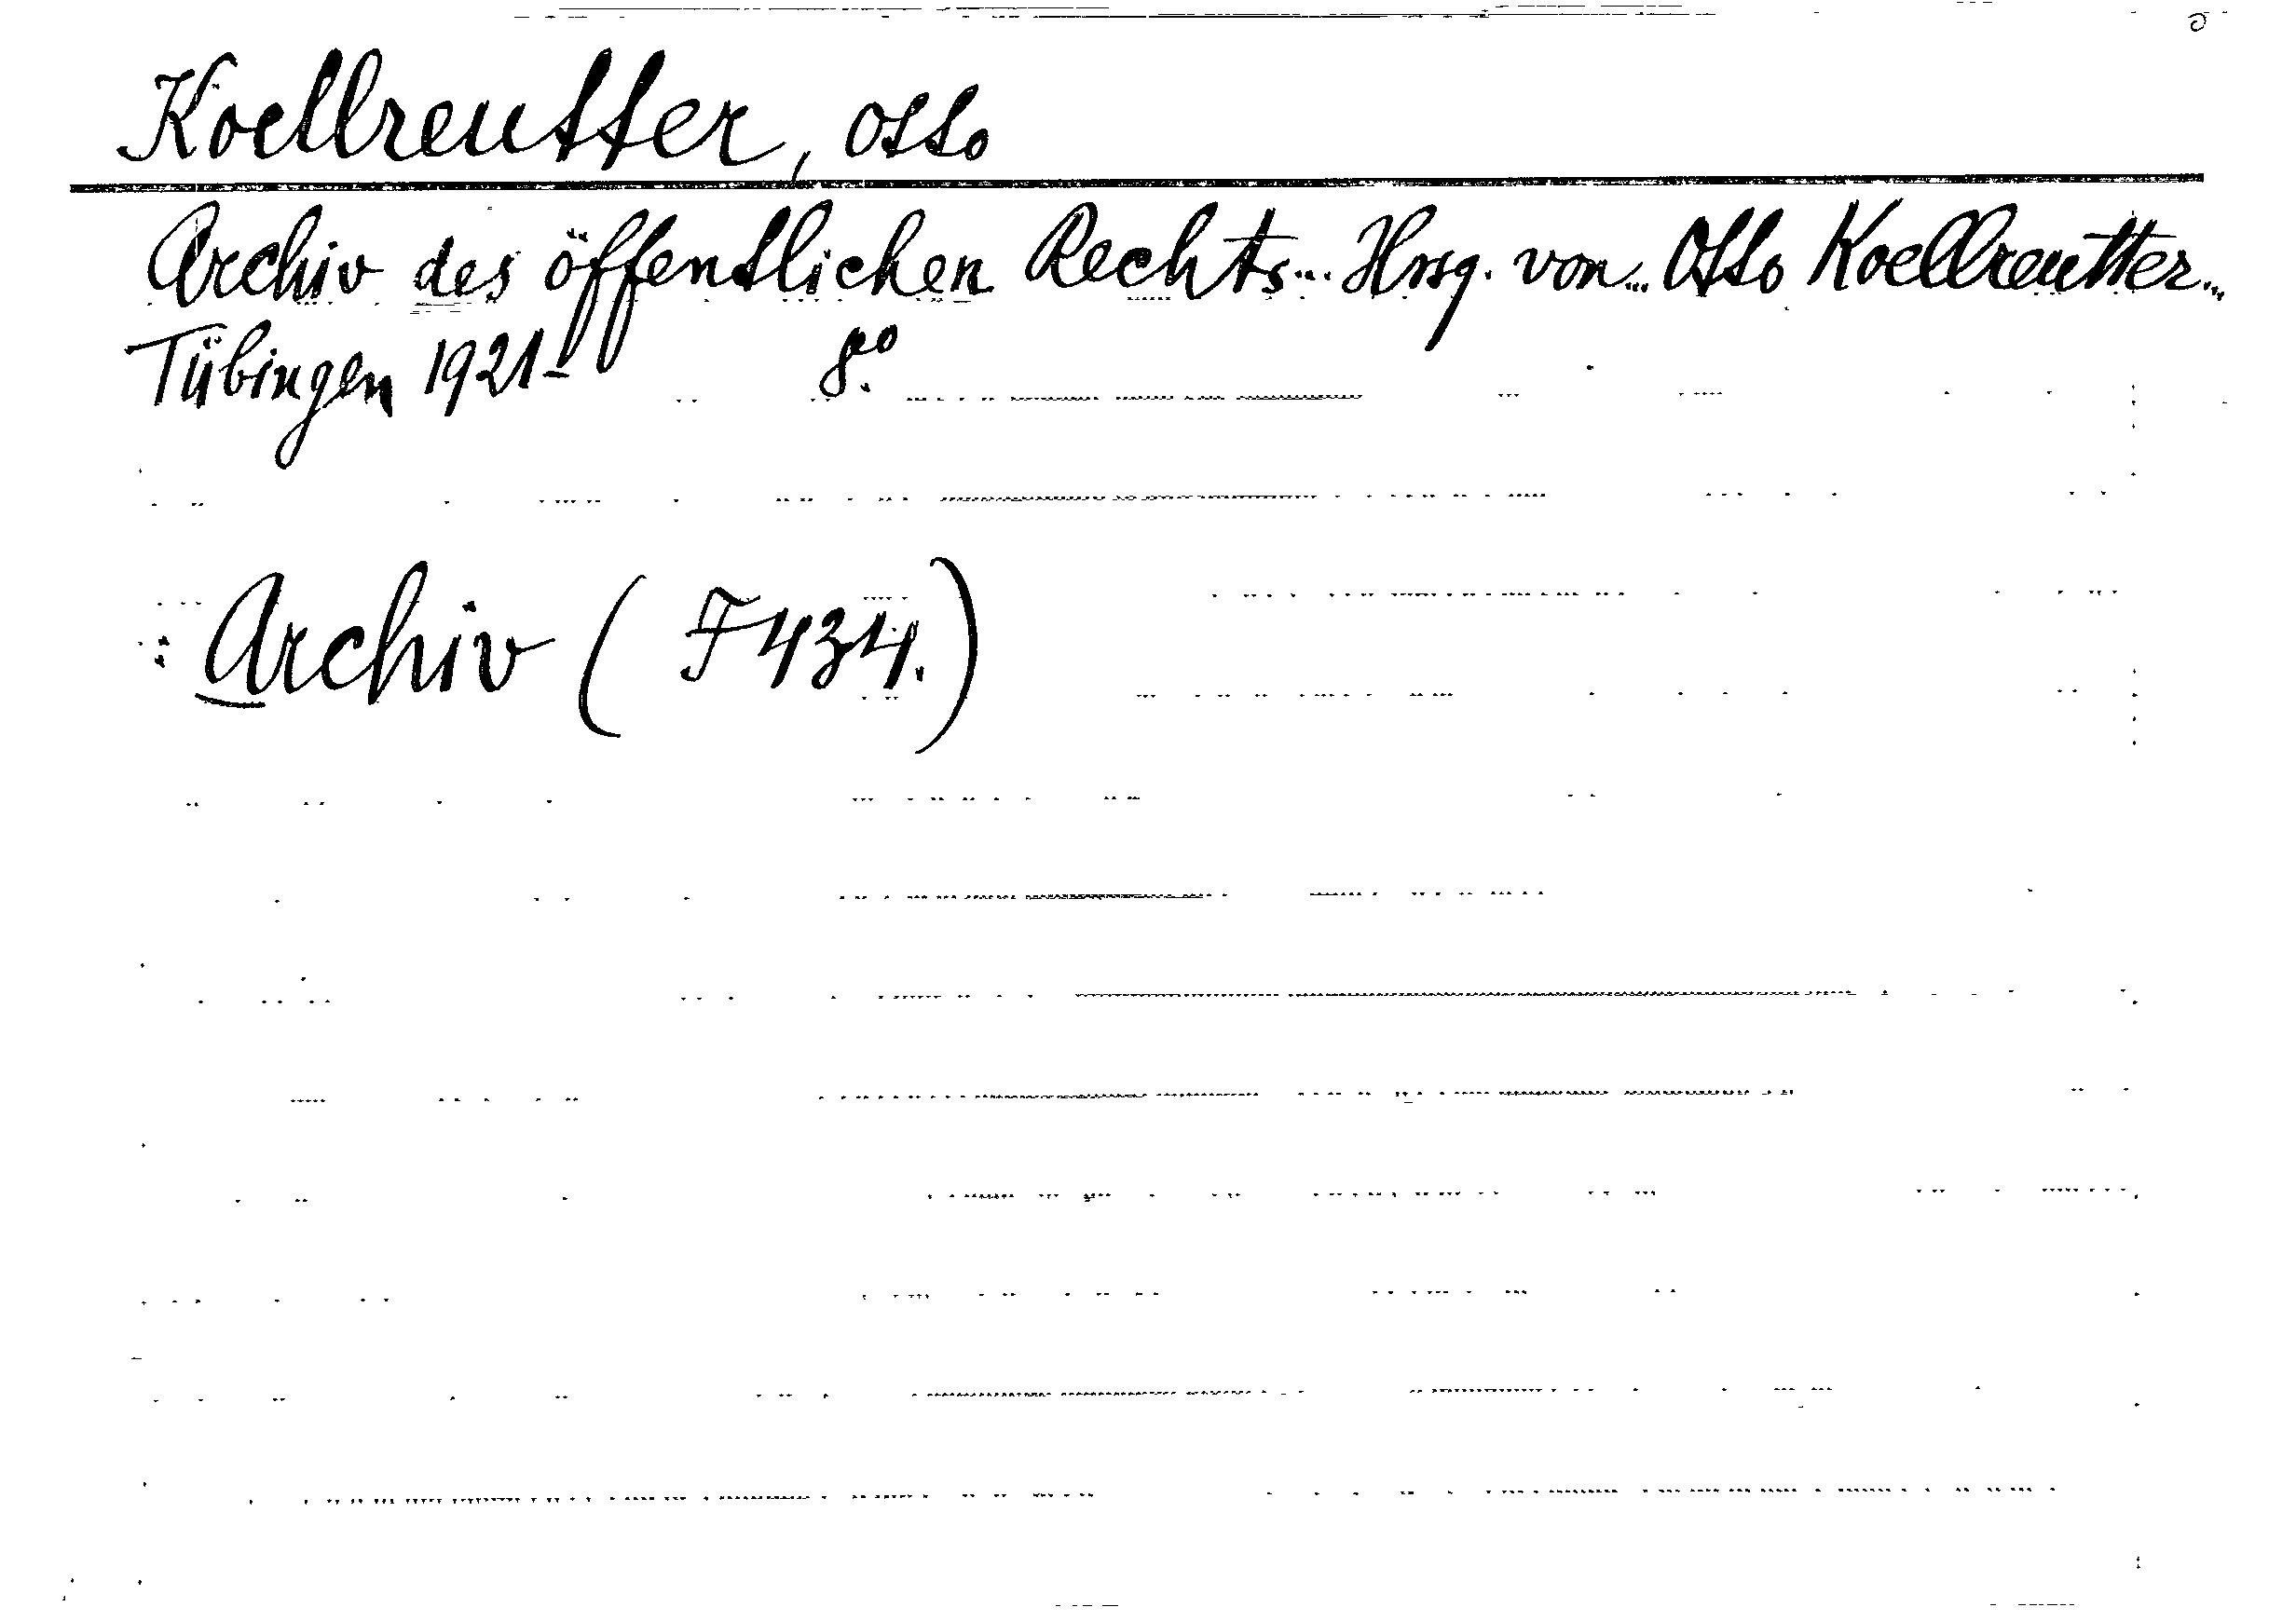 Koellreutter, Otto
Archiv des öffentlichen Rechts... Hrsg. von... Otto Koellreutter...
Tübingen 1921- 8°.
: Archiv ( F 434.)